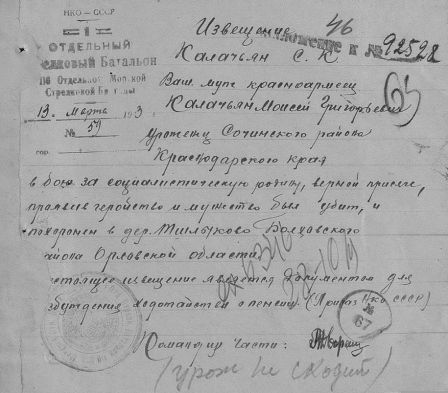 НКО – СССР
1
ОТДЕЛЬНЫЙ
Стрелковый Батальон
116 Отдельной Морской
Стрелковой Бригады
13 марта 1943
№ 59
гор.
Извещение 46
Приложение к № 92592
Калачьян С. К
Ваш муж красноармеец
Калачьян Моисей Григорьевич
уроженец Сочинского района
Краснодарского края
в бою за социалистическую родину, верной присяге,
проявив геройство и мужество был убит, и
похоронен в дер. Болховского
района Орловской области
настоящее извещение является документом для
возбуждения ходатайства о пенсии. (Приказ НКО СССР)
№
67
Командир части:
(урож не сходит)